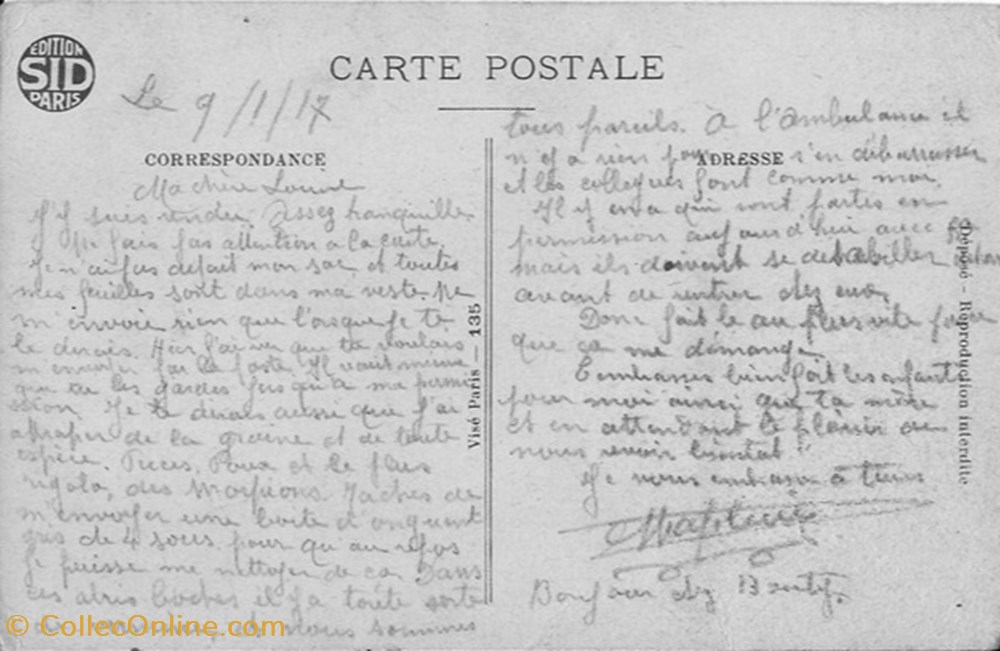 EDITION
SID
PARIS
CARTE POSTALE
Le 9/1/17
CORRESPONDANCE
Ma chère
J'y suis rendu. Assez tranquille
fais pas attention à la carte
Je n'ai pas défait mon sac et toutes
mes feuilles sont dans ma veste. Ne
m'envoie rien que lorsque je te
le dirais. Hier j'ai vu que tu voulais
m'envoyer par la poste. Il vaut mieux
que tu les gardes jusqu'à ma permi
ssion. Je te dirais aussi que j'ai
attraper de la graine et de toute
espèce. Puces, Poux et le plus
rigolo, des Morpions. Taches de
m'envoyer une boite d'onguent
gris de 4 sous pour qu'au repos
je puisse me nettoyer de ca. Dans
ces abris boches il y a toute sorte
nous sommes
Visé Paris — 135
tous pareils. à l'ambulance il
n'y a rien pour s'en débarrasser
ADRESSE
et les collègues sont comme moi.
Il y en a qui sont partis en
permission aujourd'hui avec
mais ils doivent se deshabiller
avant de rentrer chez eux.
Donc fait le au plus vite parce
que ca me démange.
Embrasses bien fort les enfants
pour moi ainsi que ta mère
et en attendant le plaisir de
vous revoir bientôt
Je vous embrasse à tous
Bonjour chez
Déposé - Reproduction Interdite
© CollecOnline.com